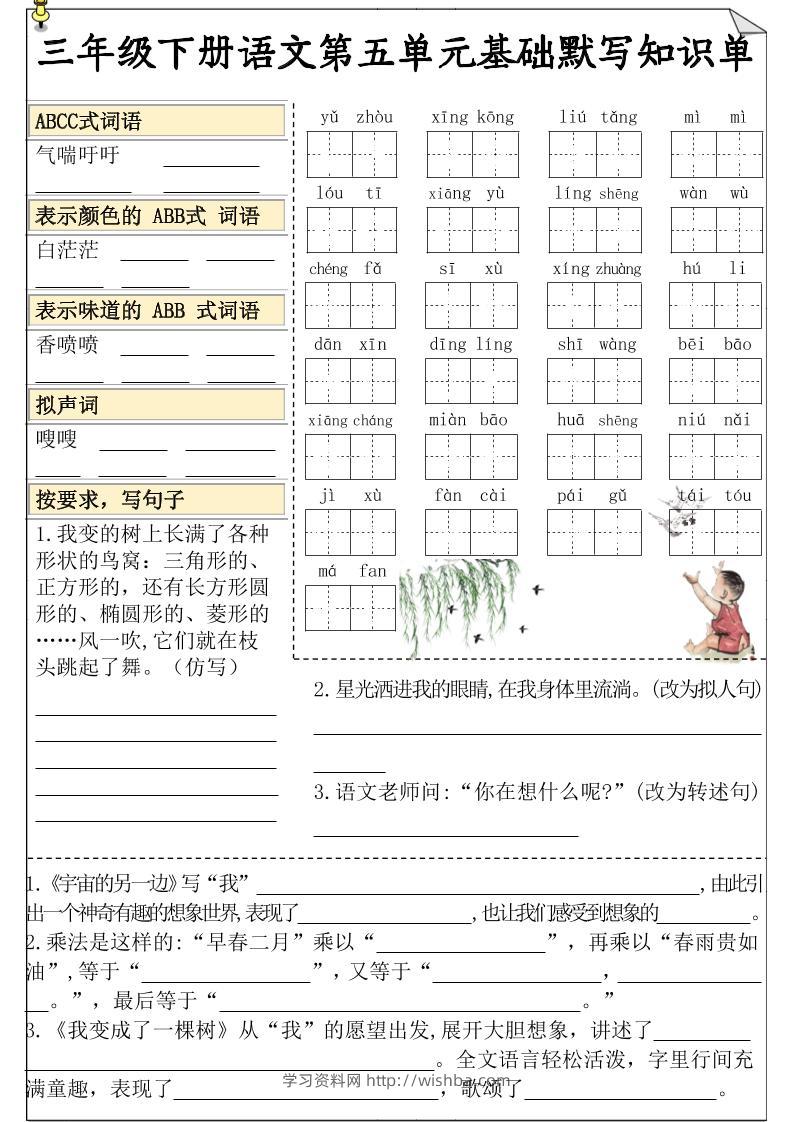 三年级下册语文第五单元基础默写知识单
ABCC式词语
气喘吁吁
表示颜色的 ABB式 词语
白茫茫
表示味道的 ABB 式词语
香喷喷
拟声词
嗖嗖
按要求，写句子
1.我变的树上长满了各种
形状的鸟窝：三角形的、
正方形的，还有长方形圆
形的、椭圆形的、菱形的
……风一吹,它们就在枝
头跳起了舞。（仿写）
yǔ zhòu xīng kōng liú tǎng mì mì
lóu tī xiāng yù líng shēng wàn wù
chéng fǎ sī xù xíng zhuàng hú li
dān xīn dīng líng shī wàng bēi bāo
xiāng cháng miàn bāo huā shēng niú nǎi
jì xù fàn cài pái gǔ tái tóu
má fan
2.星光洒进我的眼睛,在我身体里流淌。(改为拟人句)
3.语文老师问:“你在想什么呢?”(改为转述句)
1.《宇宙的另一边》写“我”,由此引
出一个神奇有趣的想象世界,表现了,也让我们感受到想象的。
2.乘法是这样的:“早春二月”乘以“”，再乘以“春雨贵如
油”,等于“”，又等于“,
。”，最后等于“。”
3.《我变成了一棵树》从“我”的愿望出发,展开大胆想象，讲述了
。全文语言轻松活泼，字里行间充
满童趣，表现了，歌颂了。
学习资料网 http://wishba.com